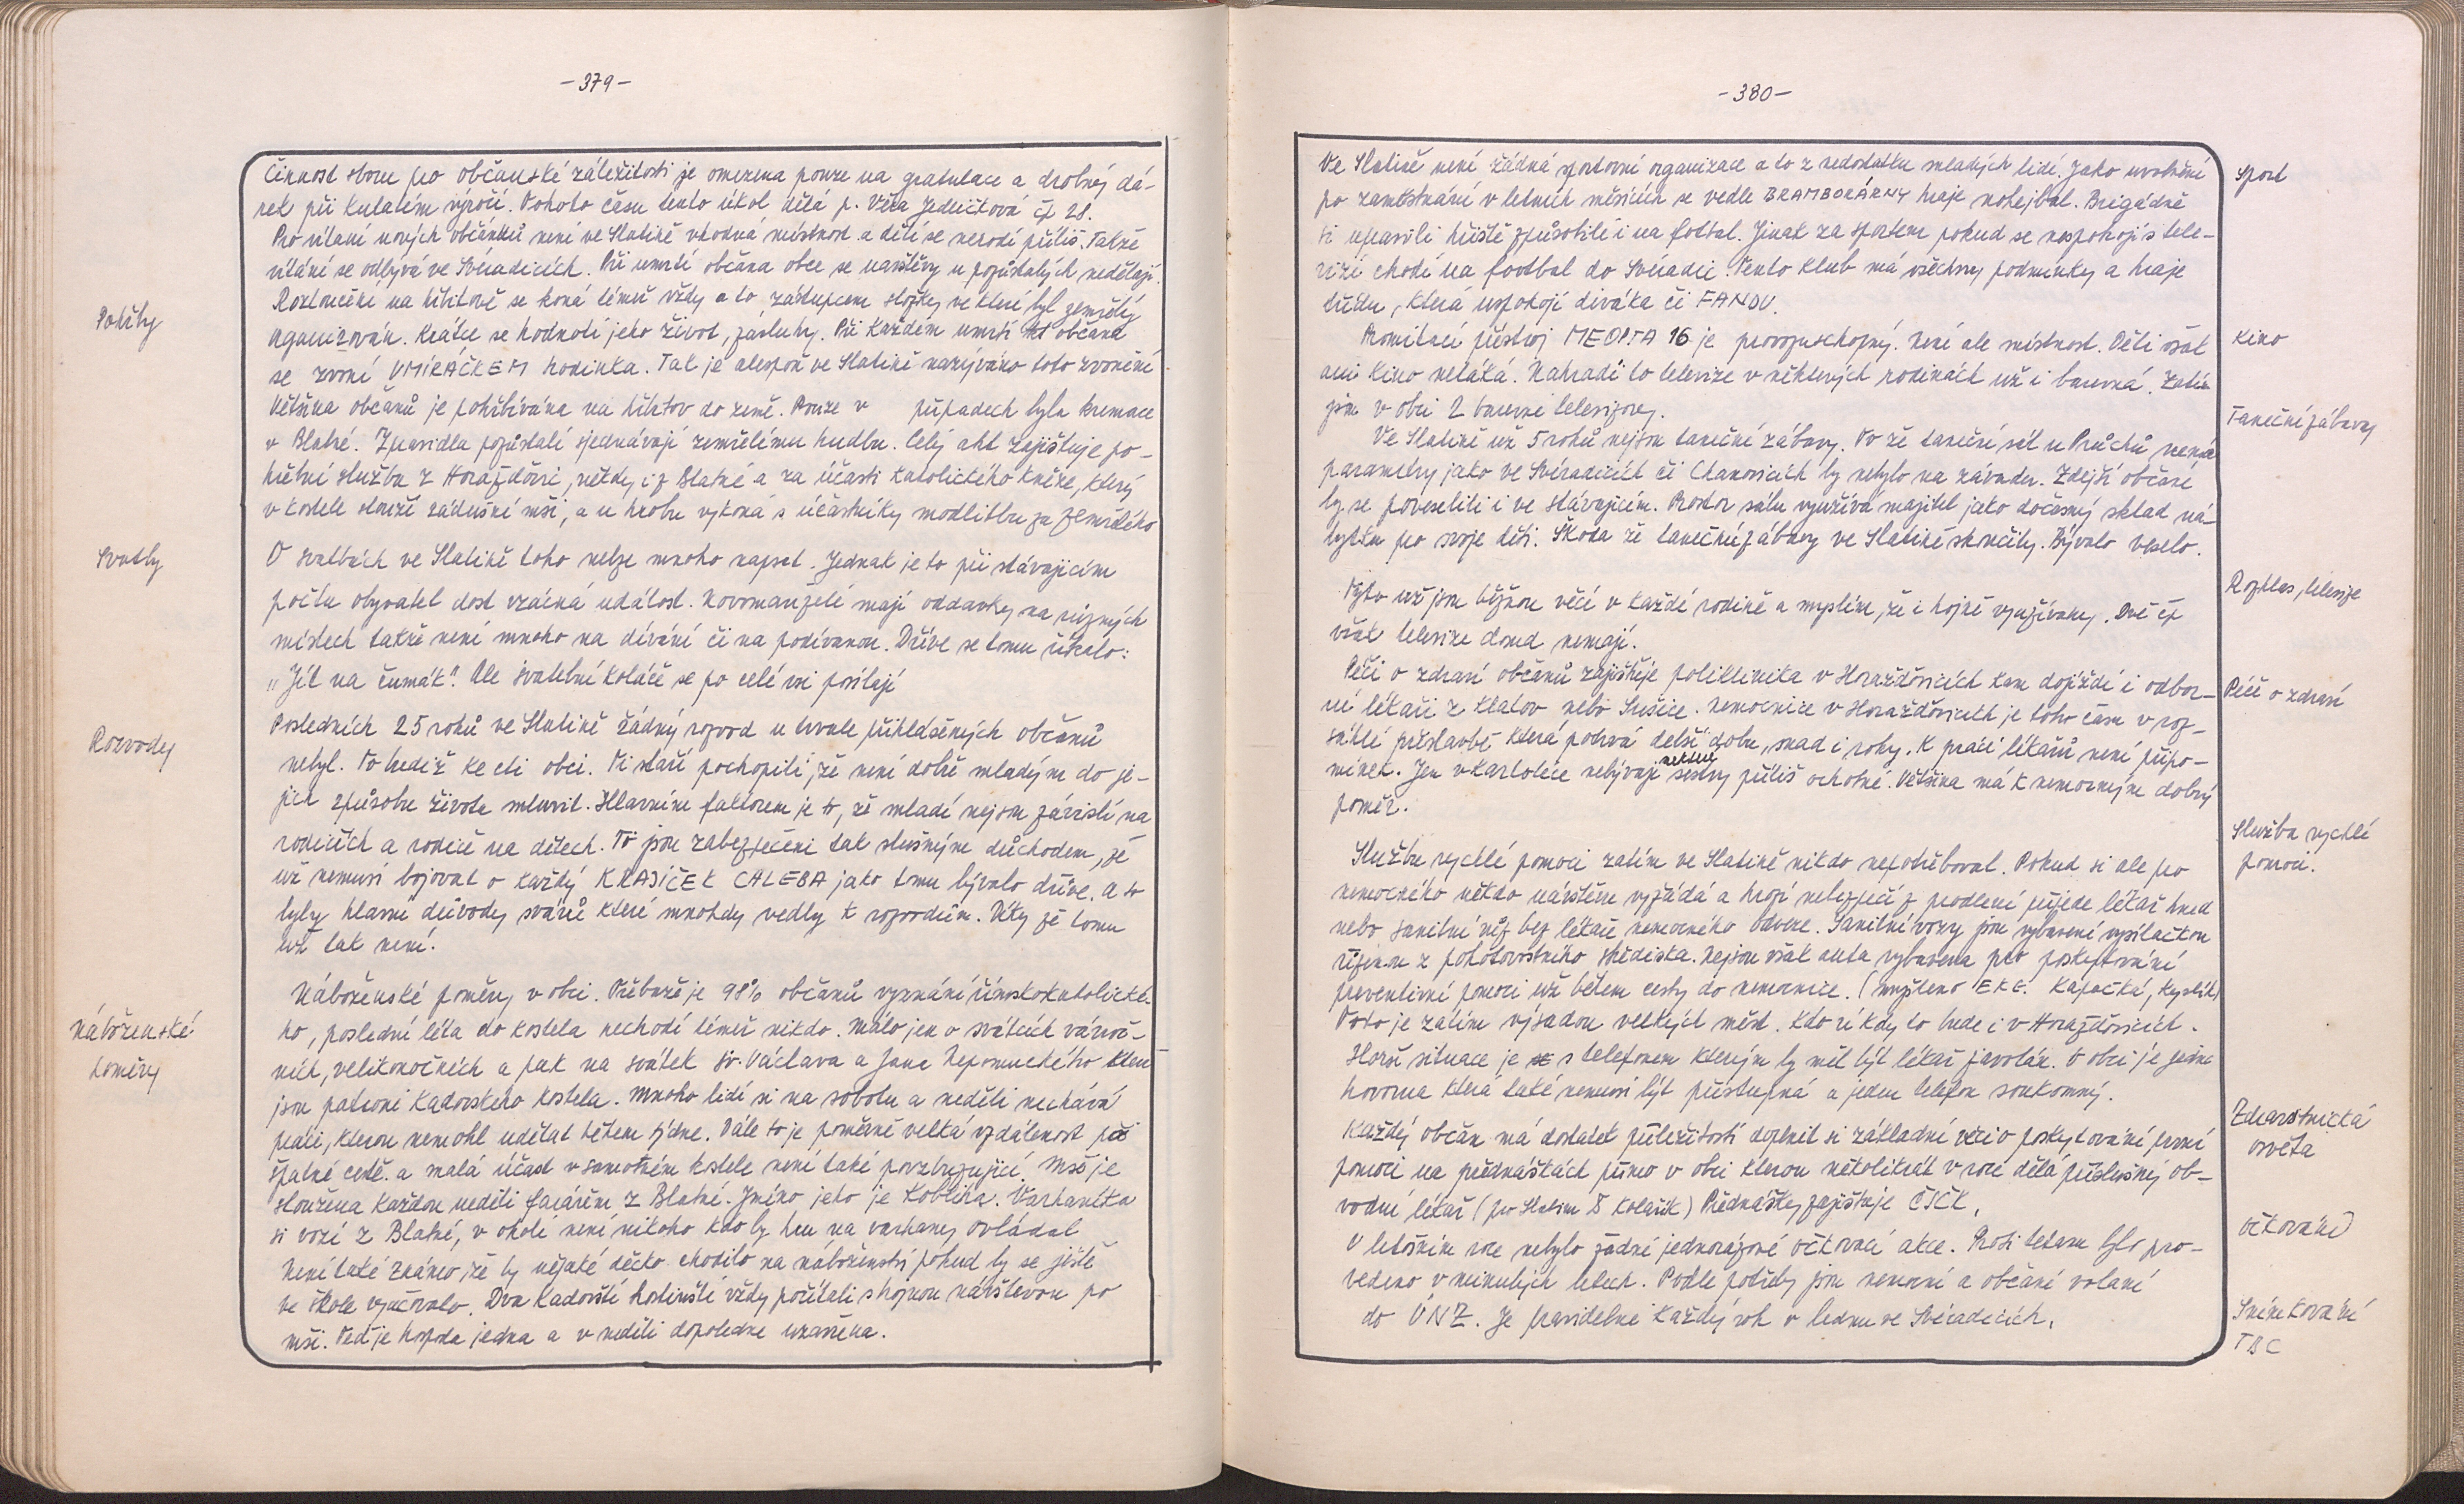 -379-
Činnost sboru pro občanské záležitosti je omezena pouze na gratulace a drobný dá-
rek při kulatém výročí. Tohoto času tento úkol dělá p. Věra Jedličková čp 28.
Pro vítání nových občánků není ve Slatině vhodná místnost a dětí se nerodí příliš. Takže
vítání se odbývá ve Svéradicích. Při umrtí občana obce se navštěvy u pozůstalých nedělají.
Pohřby
Rozloučení na hřbitově se koná téměř vždy a to zástupcem složky ve které byl zemřelý
organizován. Krátce se hodnotí jeho život, zásluhy. Při každém umrtí občana
se zvoní UMÍRÁČKEM hodinka. Tak je alespoň ve Slatině nazýváno toto zvonění
Většina občanů je pohřbívána na hřbitov do země. Pouze v případech byla kremace
v Blatné. Zpravidla pozůstalí sjednávají zemřelému hudbu. Celý akt zajišťuje po-
hřební služba z Horažďovic, někdy i z Blatné a za účasti katolického kněze, který
v kostele slouží zádušní mši, a u hrobu vykoná s účastníky modlitbu za zemřelého
Svatby
O svatbách ve Slatině toho nelze mnoho napsat. Jednak je to při stávajícím
počtu obyvatel dost vzácná událost. Novomanželé mají oddavky na různých
místech takže není mnoho na dívání či na podívanou. Dříve se tomu říkalo:
"Jít na čumák". Ale svatební koláče se po celé vsi posílají
Rozvody
Posledních 25 roků ve Slatině žádný rozvod u trvale přihlášených občanů
nebyl. To budiž ke cti obci. Ti staří pochopili, že není dobře mladým do je-
jich způsobu života mluvit. Hlavním faktorem je to, že mladí nejsou závislí na
rodičích a rodiče na dětech. Ti jsou zabezpečeni tak slušným důchodem, že
už nemusí bojovat o každý KRAJÍČEK CHLEBA jako tomu bývalo dříve. A to
byly hlavní důvody svárů které mnohdy vedly k rozvodům. Díky že tomu
už tak není.
Náboženské
poměry
Náboženské poměry v obci. Třebaže je 98% občanů vyznání římskokatolické-
ho, poslední léta do kostela nechodí téměř nikdo. Málo jen o svátcích vánoč-
ních, velikonočních a pak na svátek sv. Václava a Jana Nepomuckého kteří
jsou patroni Kadovského kostela. Mnoho lidí si na sobotu a neděli nechává
práci, kterou nemohl udělat během týdne. Dále to je poměrně velká vzdálenost při
špatné cestě. a malá účast v samotném kostele není také povzbuzující. Mše je
sloužena každou neděli farářem z Blatné. Jméno jeho je Kobliha. Varhaníka
si vozí z Blatné, v okolí není nikoho kdo by hru na varhany ovládal
Není také známo, že by nějaké děcko chodilo na náboženství pokud by se ještě
ve škole vyučovalo. Dva Kadovští hostinští vždy počítali s hojnou návštěvou po
mši. Teď je hospoda jedna a v neděli dopoledne uzavřena.
-380-
Sport
Ve Slatině není žádná sportovní organizace a to z nedostatku mladých lidí. Jako uvolnění
po zaměstnání v letních měsících se vedle BRAMBORÁRNY hraje nohejbal. Brigádně
si upravili hřiště způsobilé i na fotbal. Jinak za sportem pokud se nespokojí s tele-
vizí chodí na football do Svéradic. Tento klub má všechny podmínky a hraje
třídu, která uspokojí diváka či FANDU.
Kino
Promítací přístroj MEOPTA 16 je provozuschopný. Není ale místnost. Děti však
ani kino neláká. Nahradí to televize v některých rodinách už i barevná. Zatím
jsou v obci 2 barevné televizory.
Taneční zábavy
Ve Slatině už 5 roků nejsou taneční zábavy. To že taneční sál u Průchů nemá
parametry jako ve Svéradicích či Chanovicích by nebylo na závadu. Zdejší občané
by se poveselili i ve stávajícím. Prostor sálu využívá majitel jako dočasný sklad ná-
bytku pro svoje děti. Škoda že taneční zábavy ve Slatině skončily. Bývalo veselo.
Rozhlas, televize
Tyto už jsou běžnou věcí v každé rodině a myslím, že i hojně využívány. Dvě čp
však televize dosud nemají.
Péče o zdraví
Péči o zdraví občanů zajišťuje poliklinika v Horažďovicích kam dojíždí i odbor-
ní lékaři z Klatov nebo Sušice. Nemocnice v Horažďovicích je toho času v roz-
sáhlé přístavbě která potrvá delší dobu, snad i roky. K práci lékařů není připo-
mínek. Jen v kartotéce nebývají některé sestry příliš ochotné. Většina má k nemocným dobrý
poměr.
Služba rychlé
pomoci.
Službu rychlé pomoci zatím ve Slatině nikdo nepotřeboval. Pokud si ale pro
nemocného někdo návštěvu vyžádá a hrozí nebezpečí z prodlení přijede lékař hned
nebo sanitní vůz bez lékaře nemocného odveze. Sanitní vozy jsou vybaveni vysílačkou
řízenou z pohotovostního střediska. Nejsou však auta vybavena pro poskytování
preventivní pomoci už během cesty do nemocnice. (myšleno EKG. Kapačka, kyslík)
Toto je zatím výsadou velkých měst. Kdo ví kdy to bude i v Horažďovicích.
Horší situace je s telefonem kterým by měl být lékař zavolán. V obci je jedna
hovorna která také nemusí být přístupná a jeden telefon soukromný.
Zdravotnická
osvěta
Každý občan má dostatek příležitostí doplnit si základní věci o poskytování první
pomoci na přednáškách přímo v obci kterou několikrát v roce dělá příslušný ob-
vodní lékař (pro Slatinu Kolařík) Přednášky zajišťuje ČSČK.
Očkování
V letošním roce nebylo žádné jednorázové očkovací akce. Proti tetanu bylo pro-
vedeno v minulých letech. Podle potřeby jsou nemocní a občané voláni
Snímkování
TBC
do ÚNZ. Je pravidelné každý rok v lednu ve Svéradicích.